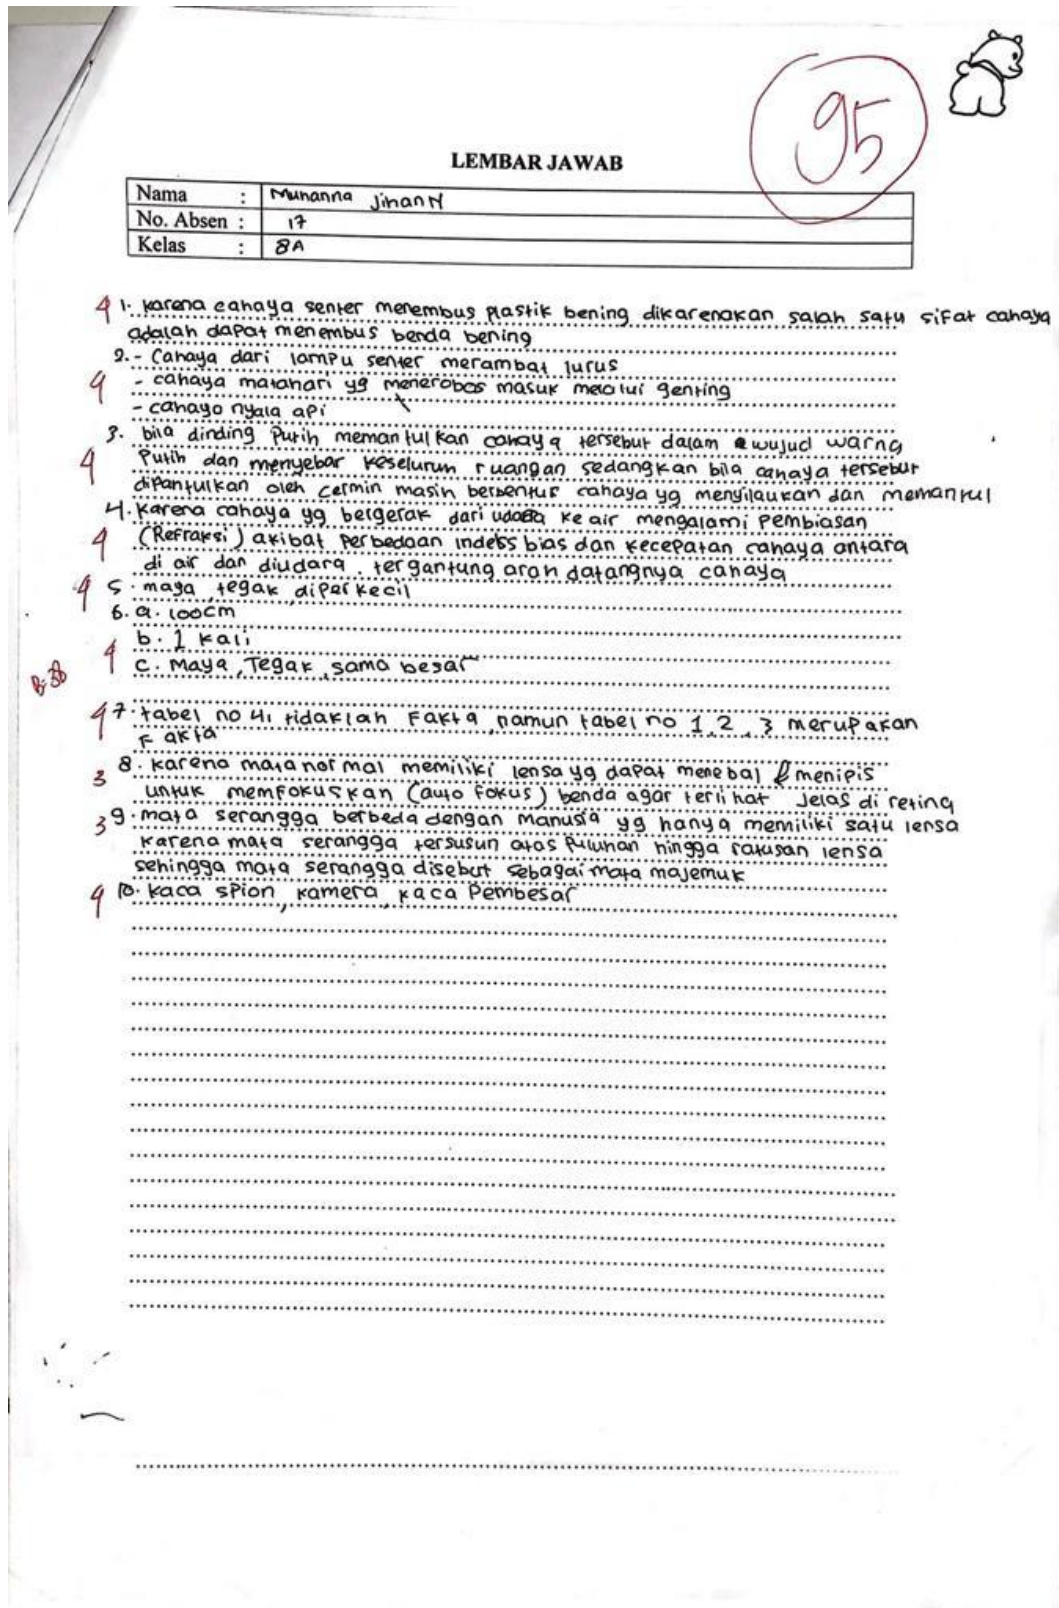 95
LEMBAR JAWAB
Nama : Muhanna Jihan N
No. Absen : 17
Kelas : 8A
4 1. karena cahaya senter menembus plastik bening dikarenakan salah satu sifat cahaya
adalah dapat menembus benda bening
2. - Cahaya dari lampu senter merambat lurus
4 - cahaya matahari yg menerobos masuk melalui genting
- cahaya nyala api
3. bila dinding Putih memantulkan cahaya tersebut dalam wujud warna
4 Putih dan menyebar keseluruh ruangan sedangkan bila cahaya tersebut
dipantulkan oleh cermin masih berbentuk cahaya yg menyilaukan dan memantul
4. Karena cahaya yg bergerak dari udara ke air mengalami Pembiasan
4 (Refraksi) akibat perbedaan indeks bias dan kecepatan cahaya antara
di air dan diudara. tergantung arah datangnya cahaya
4 5. maya, tegak, diperkecil
6. a. 100cm
b. 1 kali
4 c. Maya, Tegak, sama besar
B: 38
4 7. tabel no 4, tidaklah Fakta, namun tabel no 1, 2, 3 merupakan
Fakta
3 8. karena mata normal memiliki lensa yg dapat menebal & menipis
untuk memfokuskan (auto fokus) benda agar terlihat Jelas di retina
3 9. mata serangga berbeda dengan manusia yg hanya memiliki satu lensa
karena mata serangga tersusun atas Puluhan hingga ratusan lensa
sehingga mata serangga disebut sebagai mata majemuk
4 10. kaca spion, kamera, kaca Pembesar